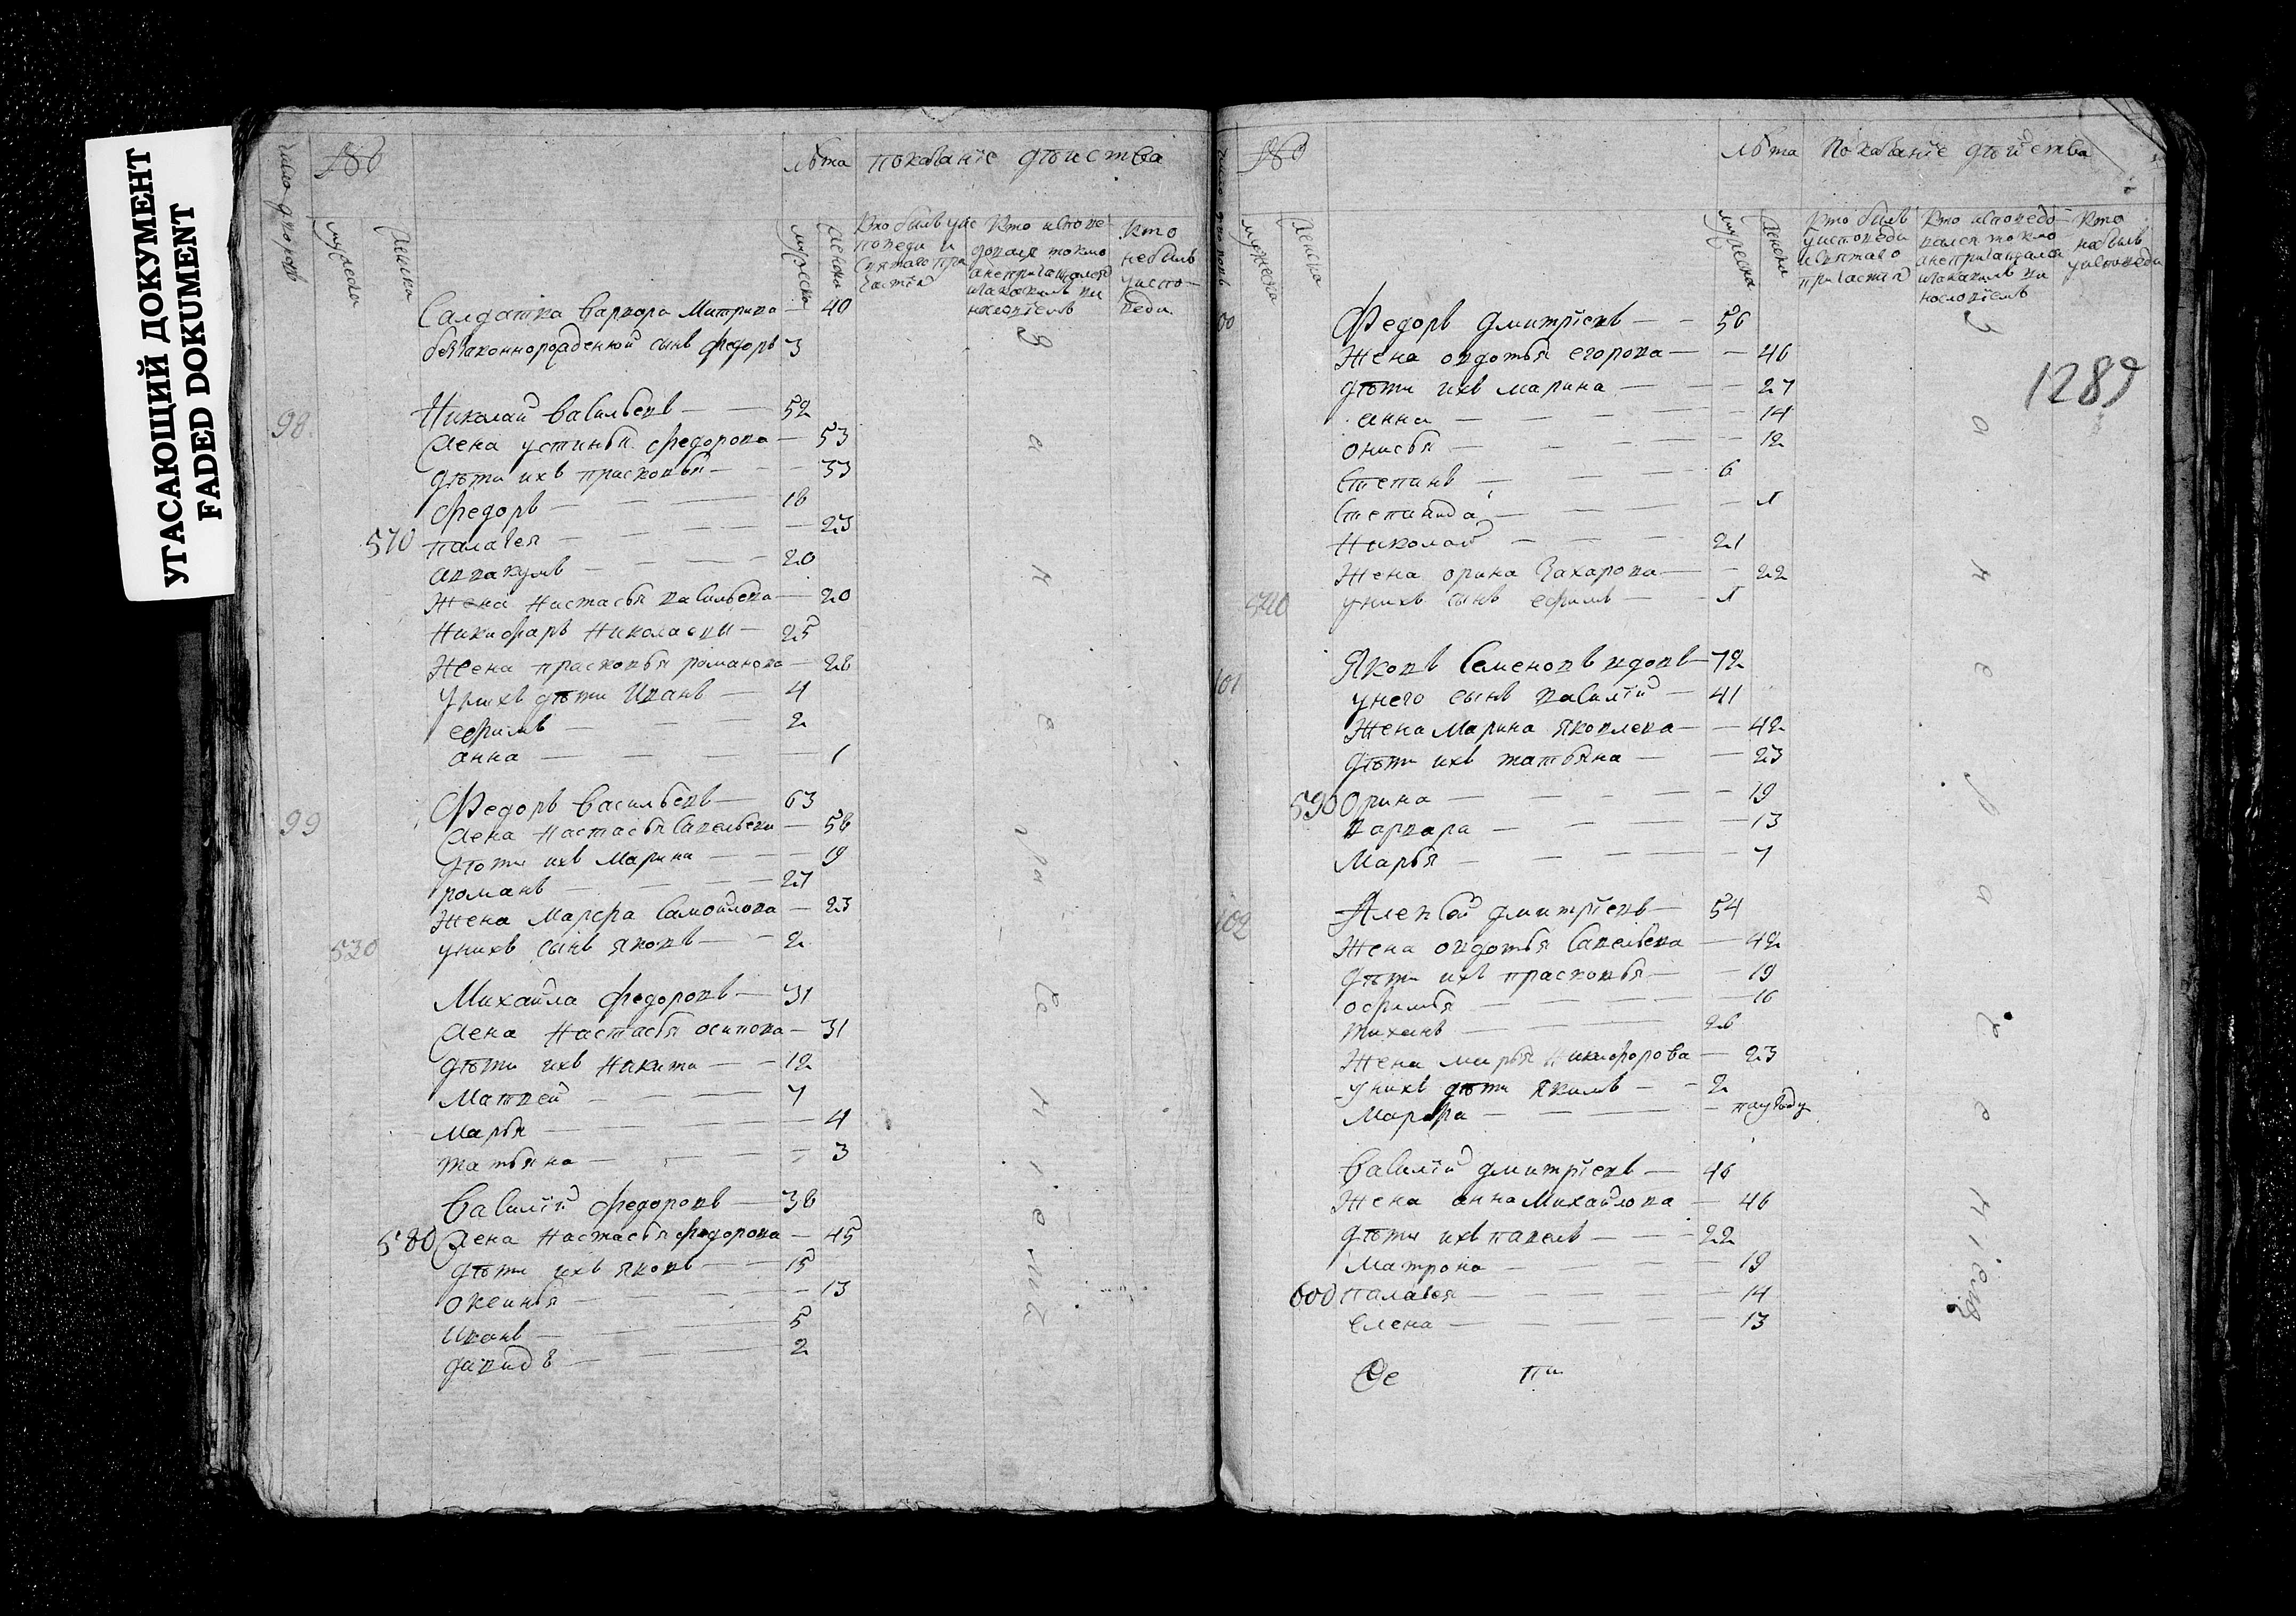 УГАСАЮЩИЙ ДОКУМЕНТ
FADED DOKUMENT
число дворовъ
лѣта показанїе дѣиства
мужеска
женска
мужеска
женска
кто былъ у исповеди и святаго причастїя
кто исповедолся токмо а непричащался и закакимъ винословїемъ
кто небылъ уисповеди
Салдатка варвара Митрива — 40
беззаконнорожденной сынъ федоръ 3
98. Николай васильевъ — 52
Жена устинья федорова — 53
дѣти ихъ прасковья — 33
федоръ — 18
570 палагея — 23
аввакумъ — 20
Жена Настасья васильева — 20
Никифаръ Николаевъ — 25
Жена прасковья романова — 28
унихъ дѣти Иванъ — 4
ефимъ — 2
анна — 1
99 Федоръ васильевъ — 63
Жена Настасья савельева — 58
дѣти ихъ Марина — 19
романъ — 27
Жена Марфа самойлова — 23
530 унихъ сынъ яковъ — 2
Михайла федоровъ — 31
Жена Настасья осипова — 31
дѣти ихъ Никита — 12
Матвей — 7
Марья — 4
татьяна — 3
василїй федоровъ — 38
580 Жена Настасья федорова — 45
дѣти ихъ яковъ — 15
оксинья — 13
иванъ — 5
давидъ — 2
за нерачениемъ
лѣта показанїе дѣйства
мужеска
женска
мужеска
женска
кто былъ уисповеди и святаго причастїя
кто исповедовался токмо а непричащался и закакимъ винословїемъ
кто небылъ уисповеди
1289
100 Федоръ дмитрїевъ — 56
Жена овдотья егорова — 46
дѣти ихъ марина — 27
анна — 14
онисья — 12
степанъ — 6
степанида — 1
Николай — 21
Жена орина захарова — 22
540 унихъ сынъ ефимъ — 1
101 Яковъ семеновъ вдовъ — 72
унего сынъ василїй — 41
Жена Марина яковлева — 42
дѣти ихъ татьяна — 23
590 Орина — 19
варвара — 13
Марья — 7
102 Алексей дмитрїевъ — 54
Жена овдотья савельева — 42
дѣти ихъ прасковья — 19
офимья — 16
тиханъ — 26
Жена марья Никифорова — 23
унихъ дѣти якимъ — 2
Марфа — полуоду
василїй дмитрїевъ — 46
Жена анна Михайлова — 46
дѣти ихъ павелъ — 22
Матрона — 19
600 палагея — 14
елена — 13
за нерачениемъ